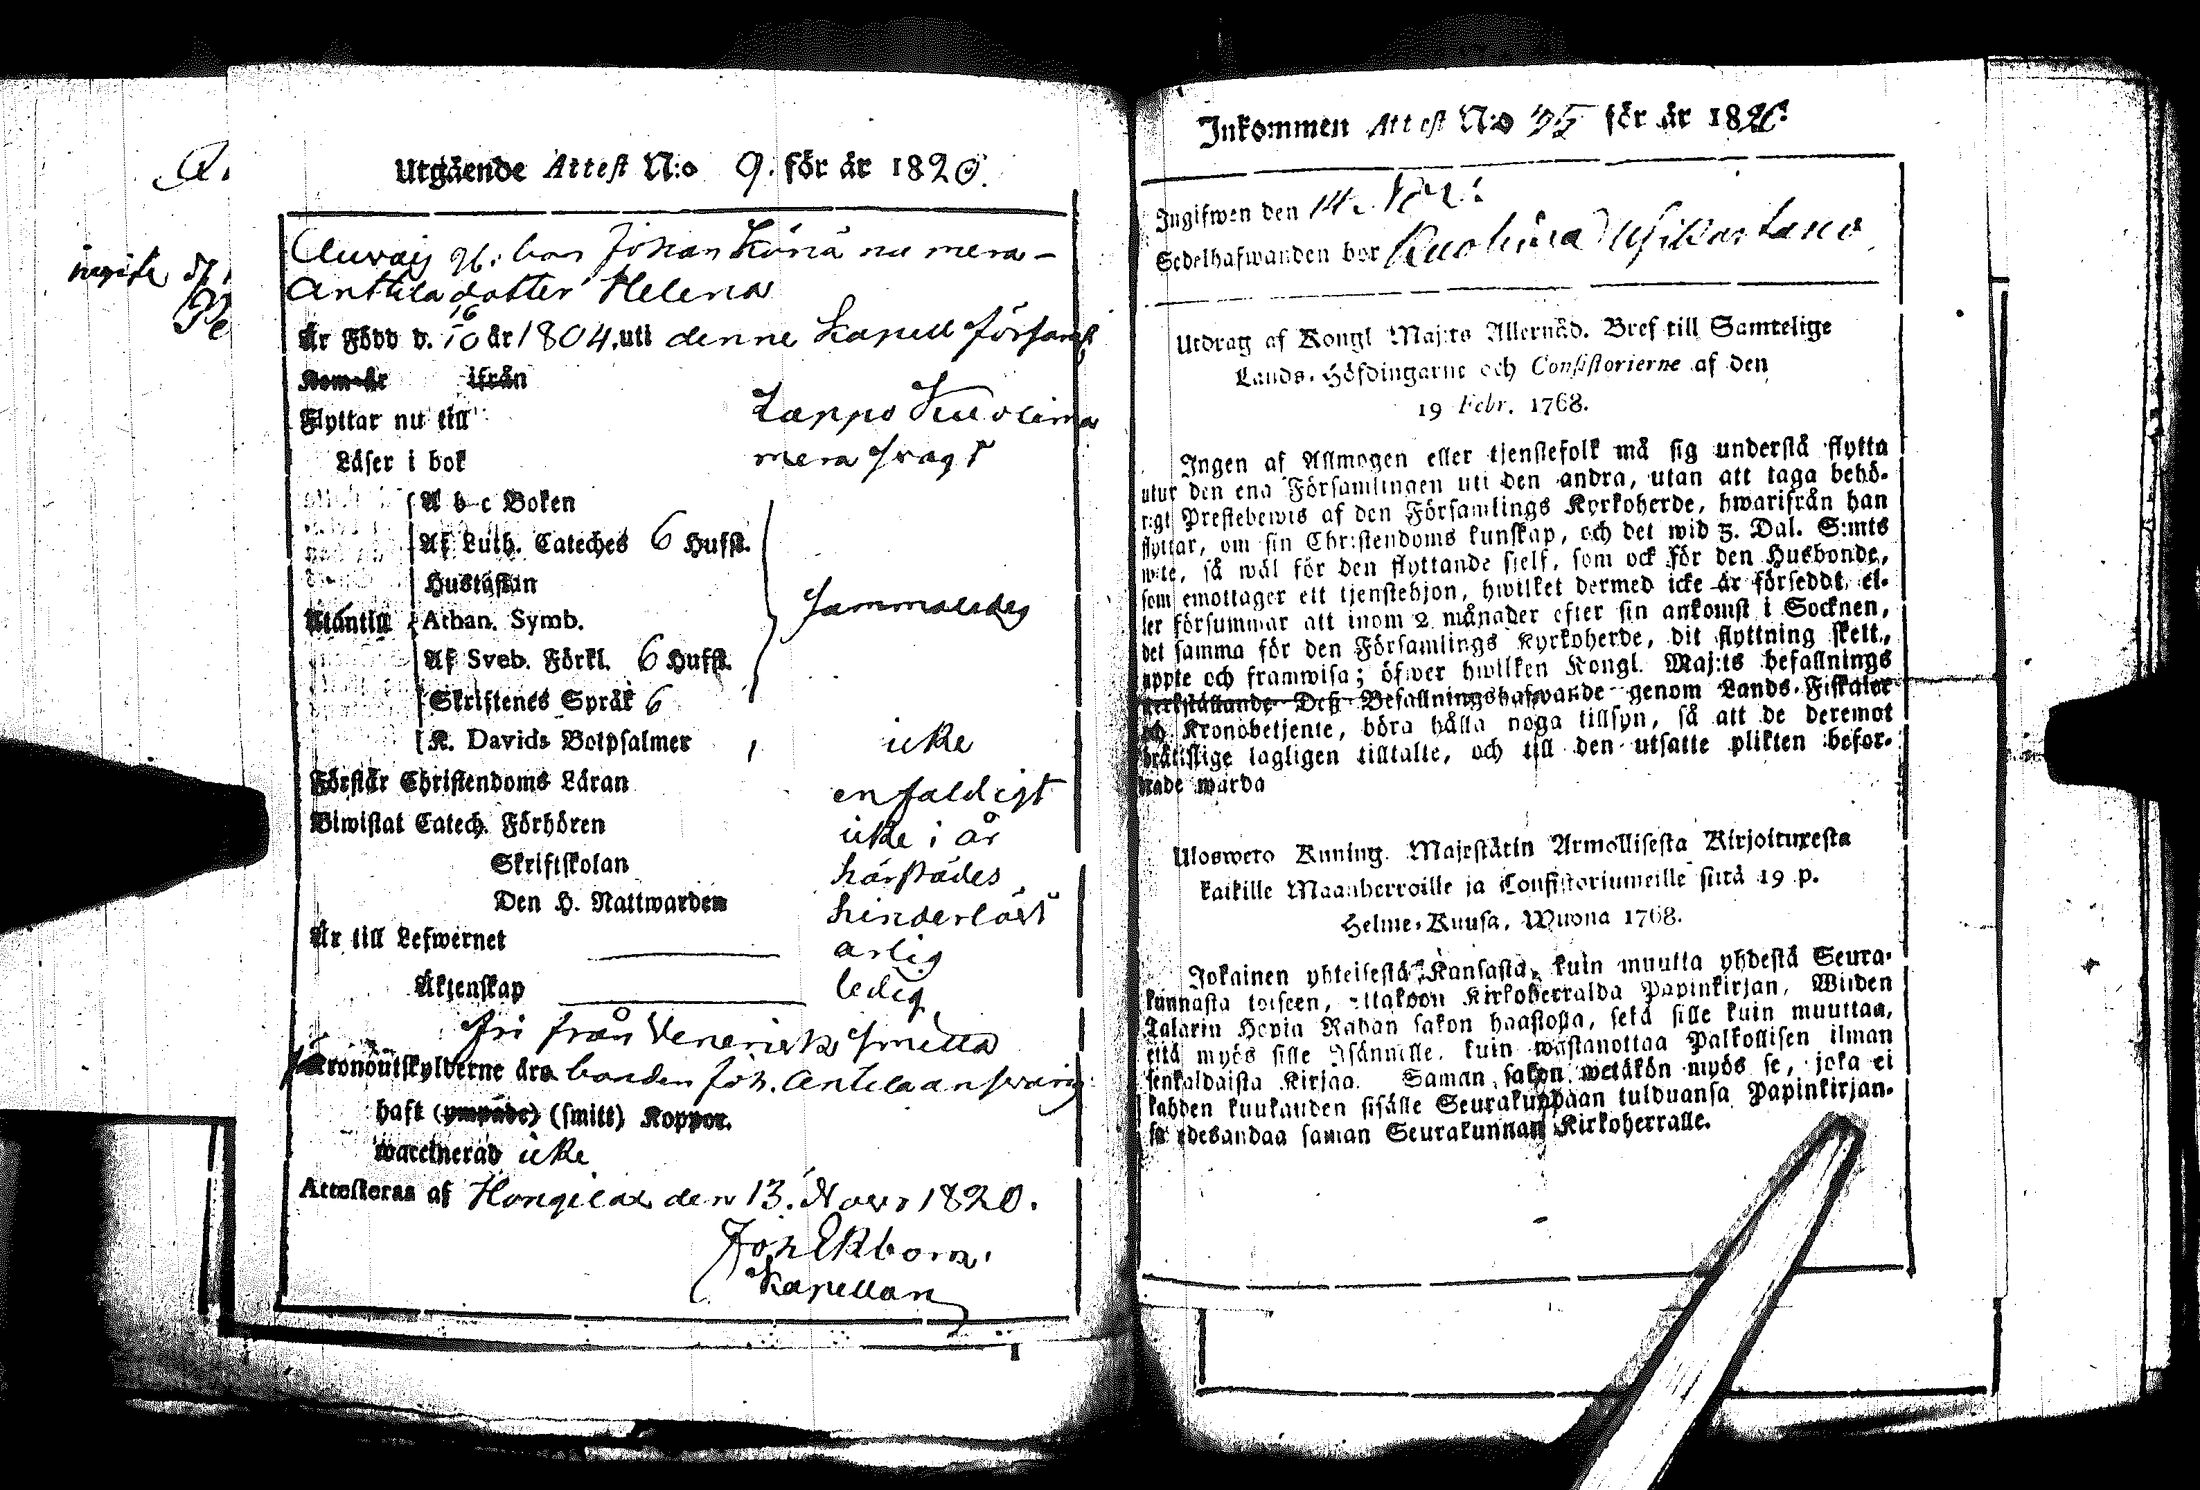 Utgående Attest N:o 9. för år 1820.
bon Johan Könä nu mera-
Anttila dotter Helena
Är Född d. 16/10 år 1804. uti denne kapell församl
Kom år ifrån
Flyttar nu till Lappo Kuolima
Läser i bok mera svagt
A b c Boken
Af Luth. Cateches 6 Hufst.
Hustaflan
Utantill Athan. Symb. sammaledes
Af Sveb. Förkl. 6 Hufst.
Skriftenes Språk 6
K. Davids Botpsalmer icke
Förstår Christendoms Läran enfaldigt
Biwistat Catech. Förhören icke i år
Skriftskolan härstädes
Den H. Nattwarden hinderlöst
Är till Lefwernet ärlig
Äktenskap ledig
fri från Venerisk smitta
Kronoutskylderne bonden Joh. Antila answarig
haft (ympade) (smitt) Koppor.
waccinerad icke
Attesteras af Hongilax den 13. Novr 1820.
Joh Ekbom.
Kapellan
Inkommen Attest N:o 75 för år 1820.
Ingifwen den 14. Nov:
Sedelhafwanden bor
Utdrag af Kongl Maj:ts Allernåd. Bref till Samtelige
Lands-Höfdingarne och Consistorierne af den
19 Febr. 1768.
Ingen af Allmogen eller tjenstefolk må sig understå flytta
utur den ena Församlingen uti den andra, utan att taga behö-
rigt Prestebewis af den Församlings Kyrkoherde, hwarifrån han
flyttar, om sin Christendoms kunskap, och det wid 5. Dal. S:mts
wite, så wäl för den flyttande sjelf, som ock för den Husbonde,
som emottager ett tjenstehjon, hwilket dermed icke är försedt, el-
ler försummar att inom 2 månader efter sin ankomst i Socknen,
det samma för den Församlings Kyrkoherde, dit flyttning skett,
uppte och framwisa; öfwer hwilken Kongl. Maj:ts befallnings
werkställande Deß Befallningshafwande genom Lands-Fiskaler
och Kronobetjente, böra hålla noga tillsyn, så att de deremot
bråtslige lagligen tilltalte, och till den utsatte plikten befor-
drade warda
Uloswero Kuning. Majestätin Armollisesta Kirjoituxesta
kaikille Maanherroille ja Consistoriumeille siitä 19 p.
Helme-Kuusa, Wuona 1768.
Jokainen yhteisestä Kansasta, kuin muutta yhdestä Seura-
kunnasta toiseen, ottakoon Kirkoherralda Papinkirjan, Wiiden
Talarin Hopia Rahan sakon haastossa, sekä sille kuin muuttaa,
että myös sille Isännälle, kuin wastanottaa Palkollisen ilman
senkaldaista Kirjaa. Saman sakon wetäkön myös se, joka ei
kahden kuukauden sisälle Seurakundaan tulduansa Papinkirjan-
sa edesandaa saman Seurakunnan Kirkoherralle.